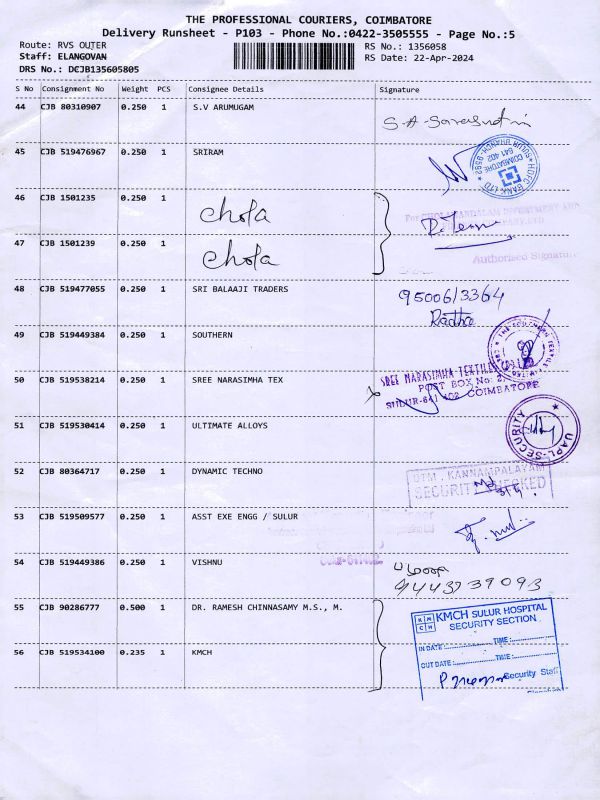 THE PROFESSIONAL COURIERS, COIMBATORE
Delivery Runsheet - P103 - Phone No.:0422-3505555 - Page No.:5
Route: RVS OUTER RS No.: 1356058
Staff: ELANGOVAN RS Date: 22-Apr-2024
DRS No.: DCJB135605805
S No Consignment No Weight PCS Consignee Details Signature
44 CJB 80310907 0.250 1 S.V ARUMUGAM
45 CJB 519476967 0.250 1 SRIRAM
HDFC BANK LTD
COIMBATORE
641 402
SULUR BRANCH
46 CJB 1501235 0.250 1 Chola
47 CJB 1501239 0.250 1 Chola
Authorised Signature
48 CJB 519477055 0.250 1 SRI BALAAJI TRADERS 9500613364
Radha
49 CJB 519449384 0.250 1 SOUTHERN
50 CJB 519538214 0.250 1 SREE NARASIMHA TEX
SREE NARASIMHA TEXTILE
POST BOX No: 2,
SULUR-641 402 COIMBATORE
51 CJB 519530414 0.250 1 ULTIMATE ALLOYS UAPL-SECURITY
52 CJB 80364717 0.250 1 DYNAMIC TECHNO
DTM, KANNAMPALAYAM
SECURITY CHECKED
53 CJB 519509577 0.250 1 ASST EXE ENGG / SULUR
54 CJB 519449386 0.250 1 VISHNU
9443739093
55 CJB 90286777 0.500 1 DR. RAMESH CHINNASAMY M.S., M.
KMCH SULUR HOSPITAL
SECURITY SECTION
IN DATE: TIME:
OUT DATE: TIME:
56 CJB 519534100 0.235 1 KMCH
Security Staff